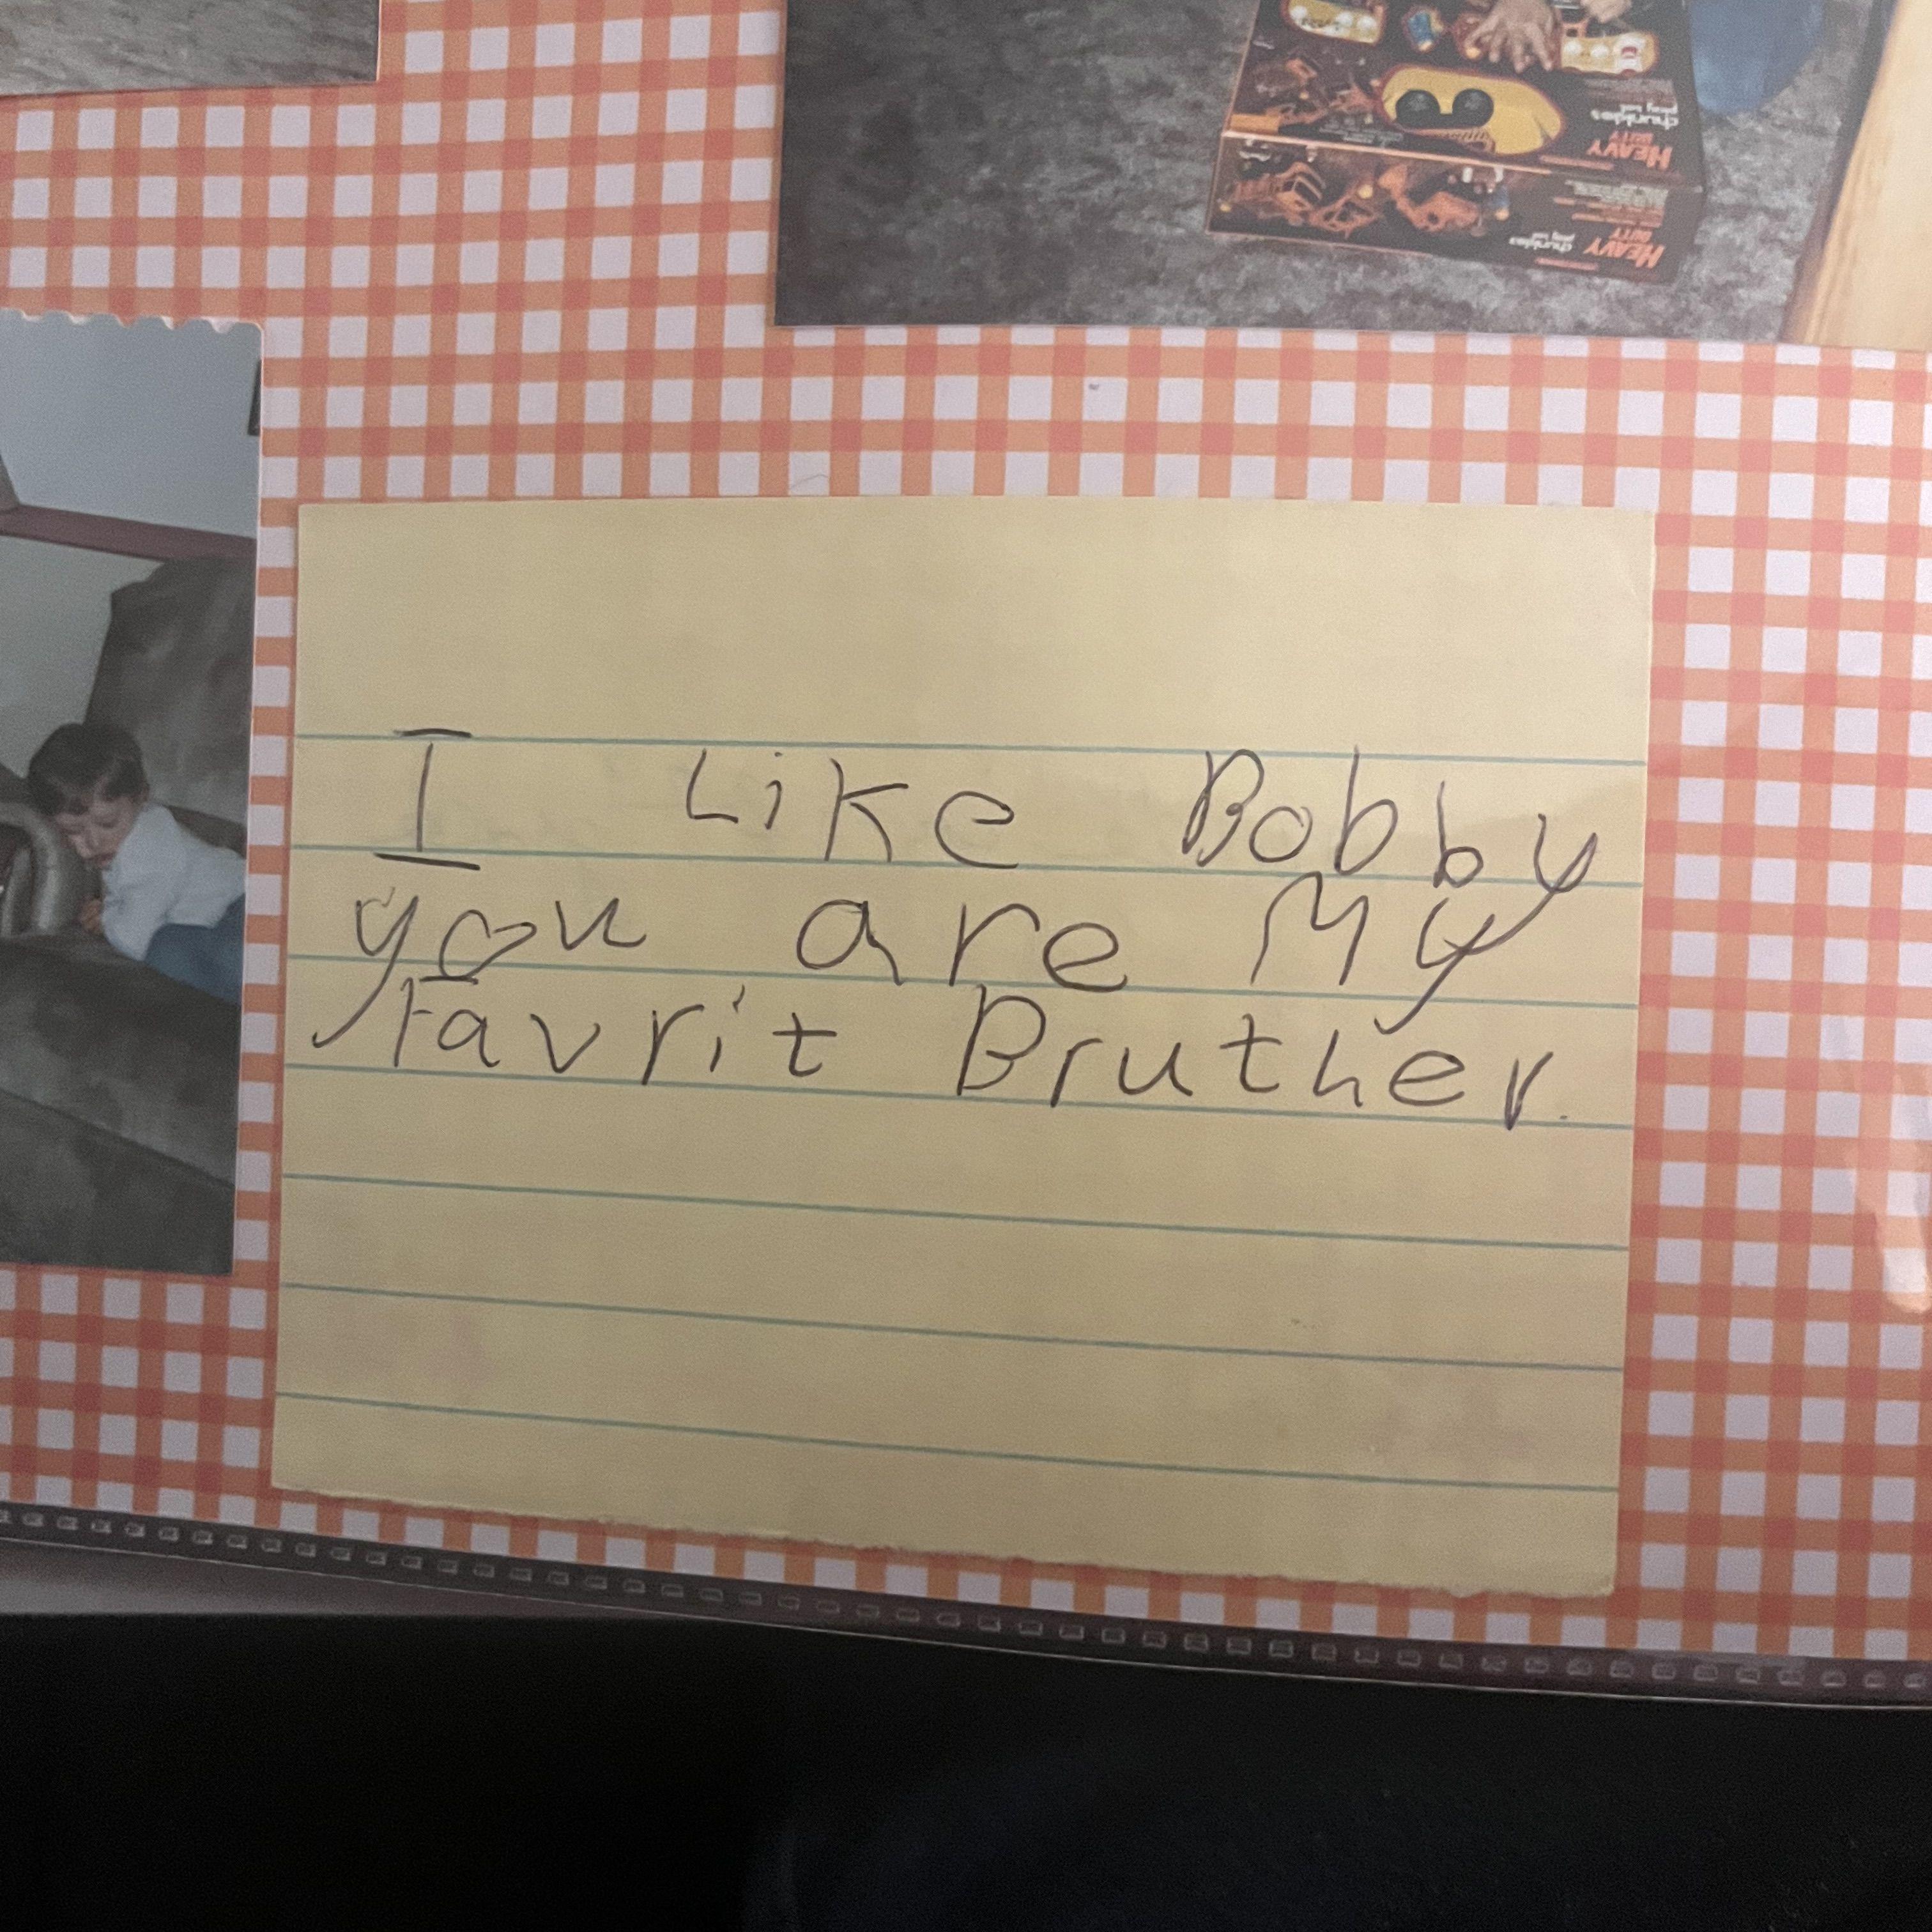 HEAVY
DUTY
chunkies
play set
HEAVY
DUTY
chunkies
play set
I Like Bobby
you are My
Favrit Bruther.